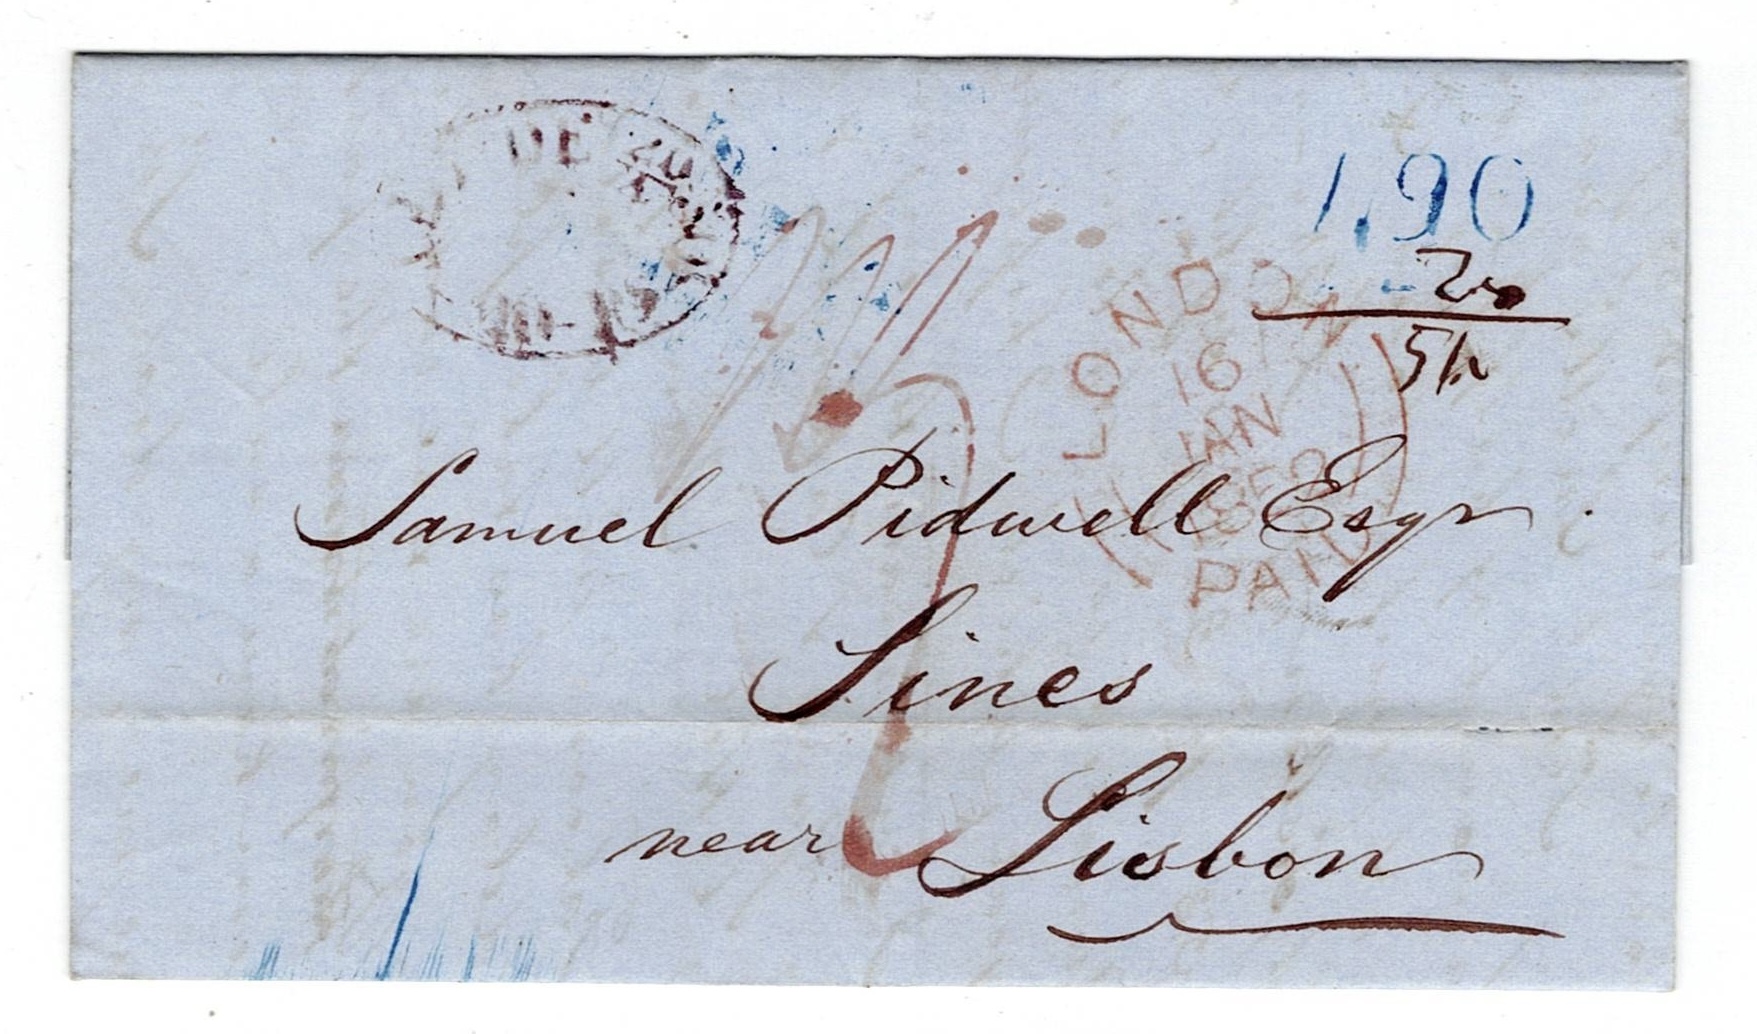 190
LONDON
16
JAN
PAID
Samuel Pidwell Esqr
Sines
near Lisbon